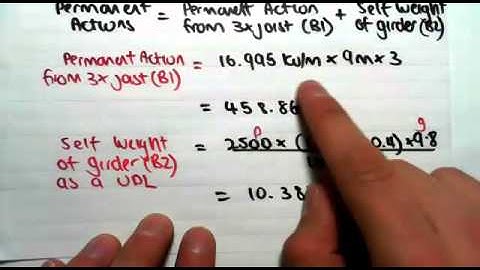 Permanent = Permanent Action + Self weight
Actions from 3x joist (B1) of girder (B2)
Permanent Action = 16.995 kN/m × 9m × 3
from 3x joist (B1)
= 458.86
Self weight = 2500 × ( 0.4) × 9.8
of girder (B2) ρ g
as a UDL
= 10.38